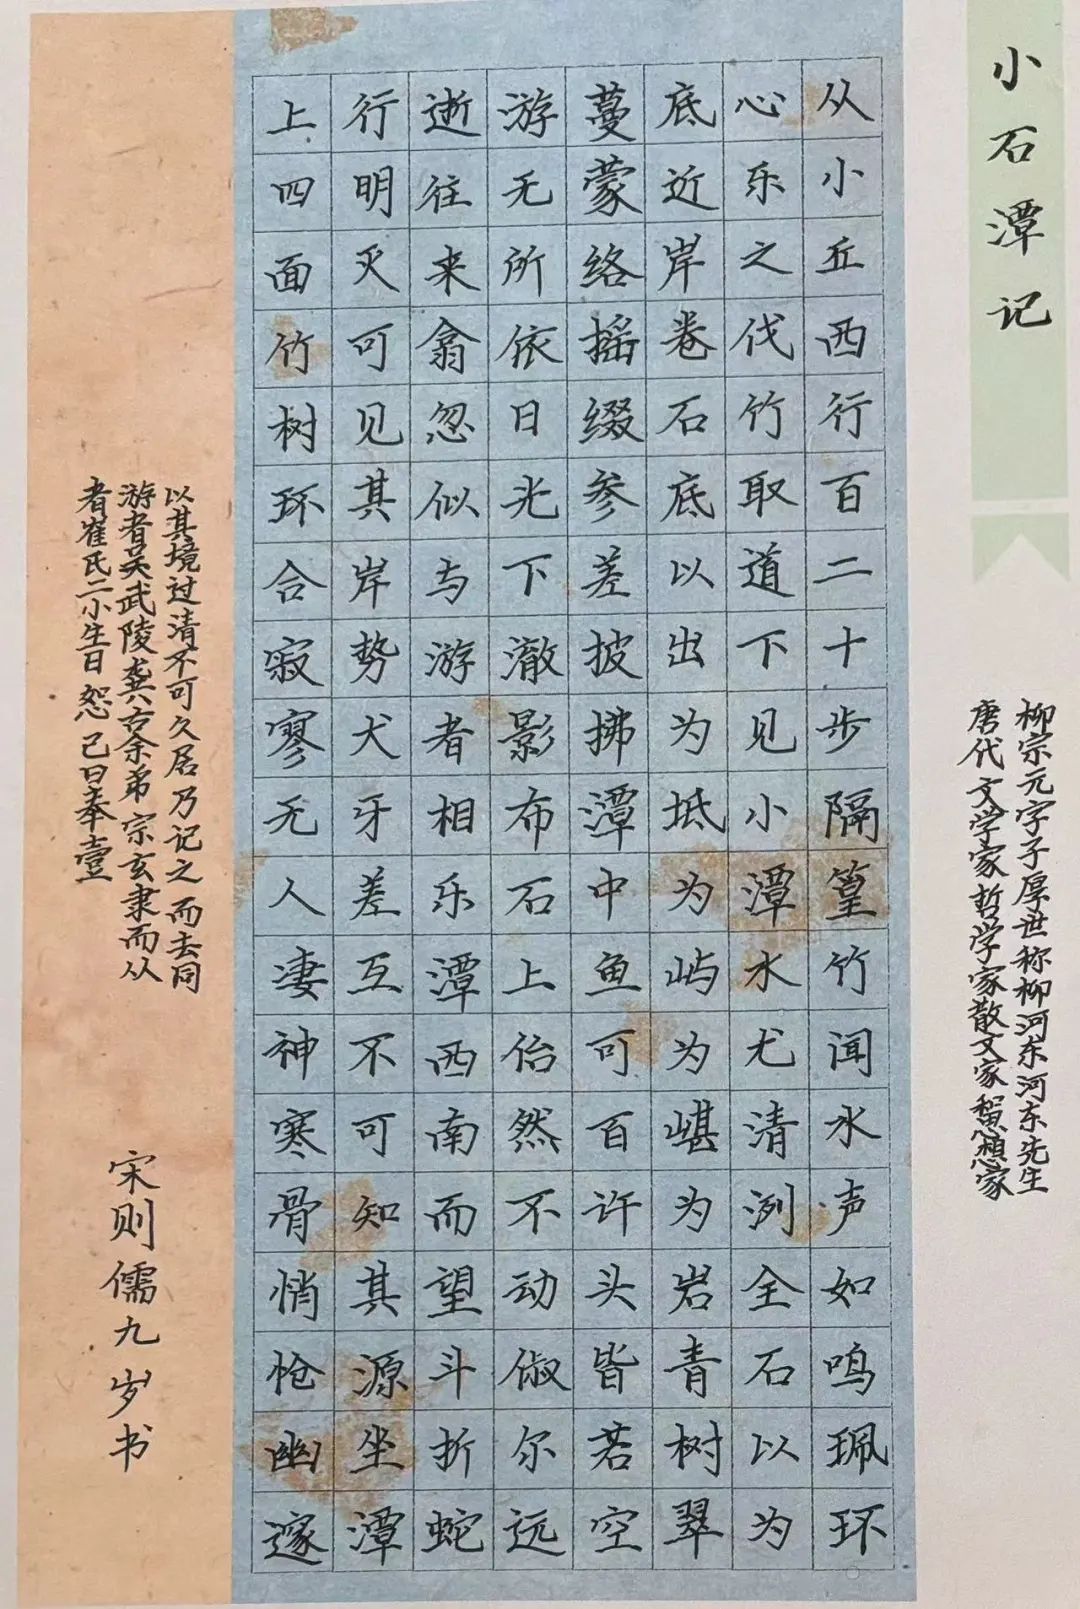 小石潭记
柳宗元字子厚世称柳河东河东先生
唐代文学家哲学家散文家思想家
从小丘西行百二十步隔篁竹闻水声如鸣珮环
心乐之伐竹取道下见小潭水尤清洌全石以为
底近岸卷石底以出为坻为屿为嵁为岩青树翠
蔓蒙络摇缀参差披拂潭中鱼可百许头皆若空
游无所依日光下澈影布石上佁然不动俶尔远
逝往来翕忽似与游者相乐潭西南而望斗折蛇
行明灭可见其岸势犬牙差互不可知其源坐潭
上四面竹树环合寂寥无人凄神寒骨悄怆幽邃
以其境过清不可久居乃记之而去同
游者吴武陵龚古余弟宗玄隶而从
者崔氏二小生曰恕己曰奉壹
宋则儒九岁书